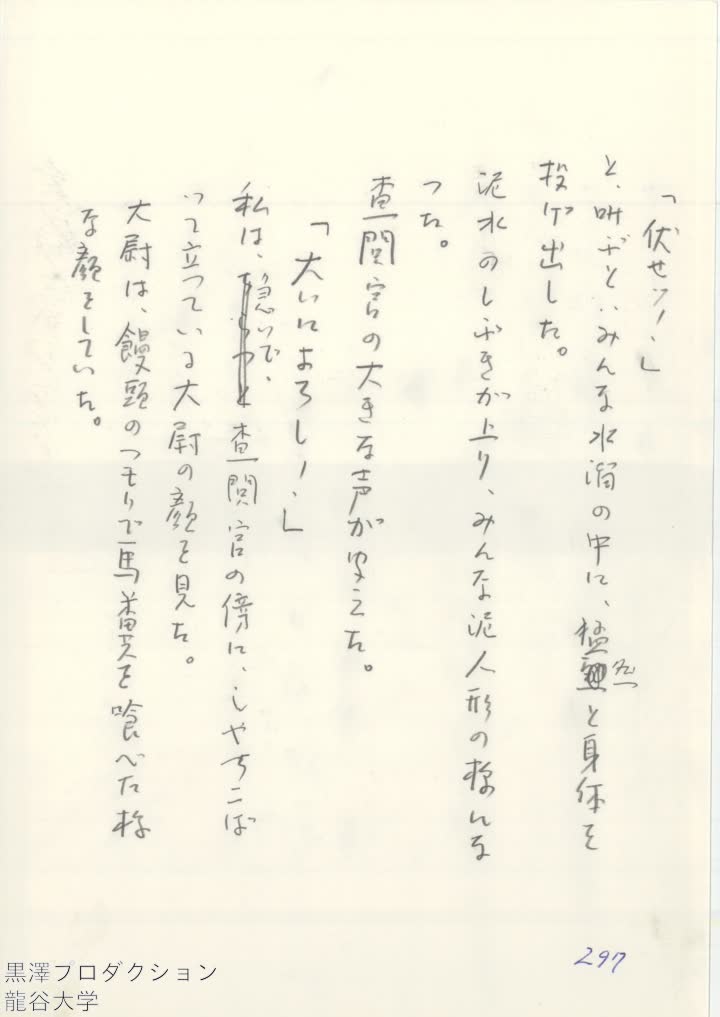 「伏せッ！」
と、叫ぶと、みんな水溜の中に、猛然と身体を
投げ出した。
泥水のしぶきが上り、みんな泥人形の様にな
った。
査閲官の大きな声が聞えた。
「大いによろし！」
私は、急いで、査閲官の傍に、しゃちこば
って立っている大尉の顔を見た。
大尉は、饅頭のつもりで馬糞を喰べた様
な顔をしていた。
297
黒澤プロダクション
龍谷大学